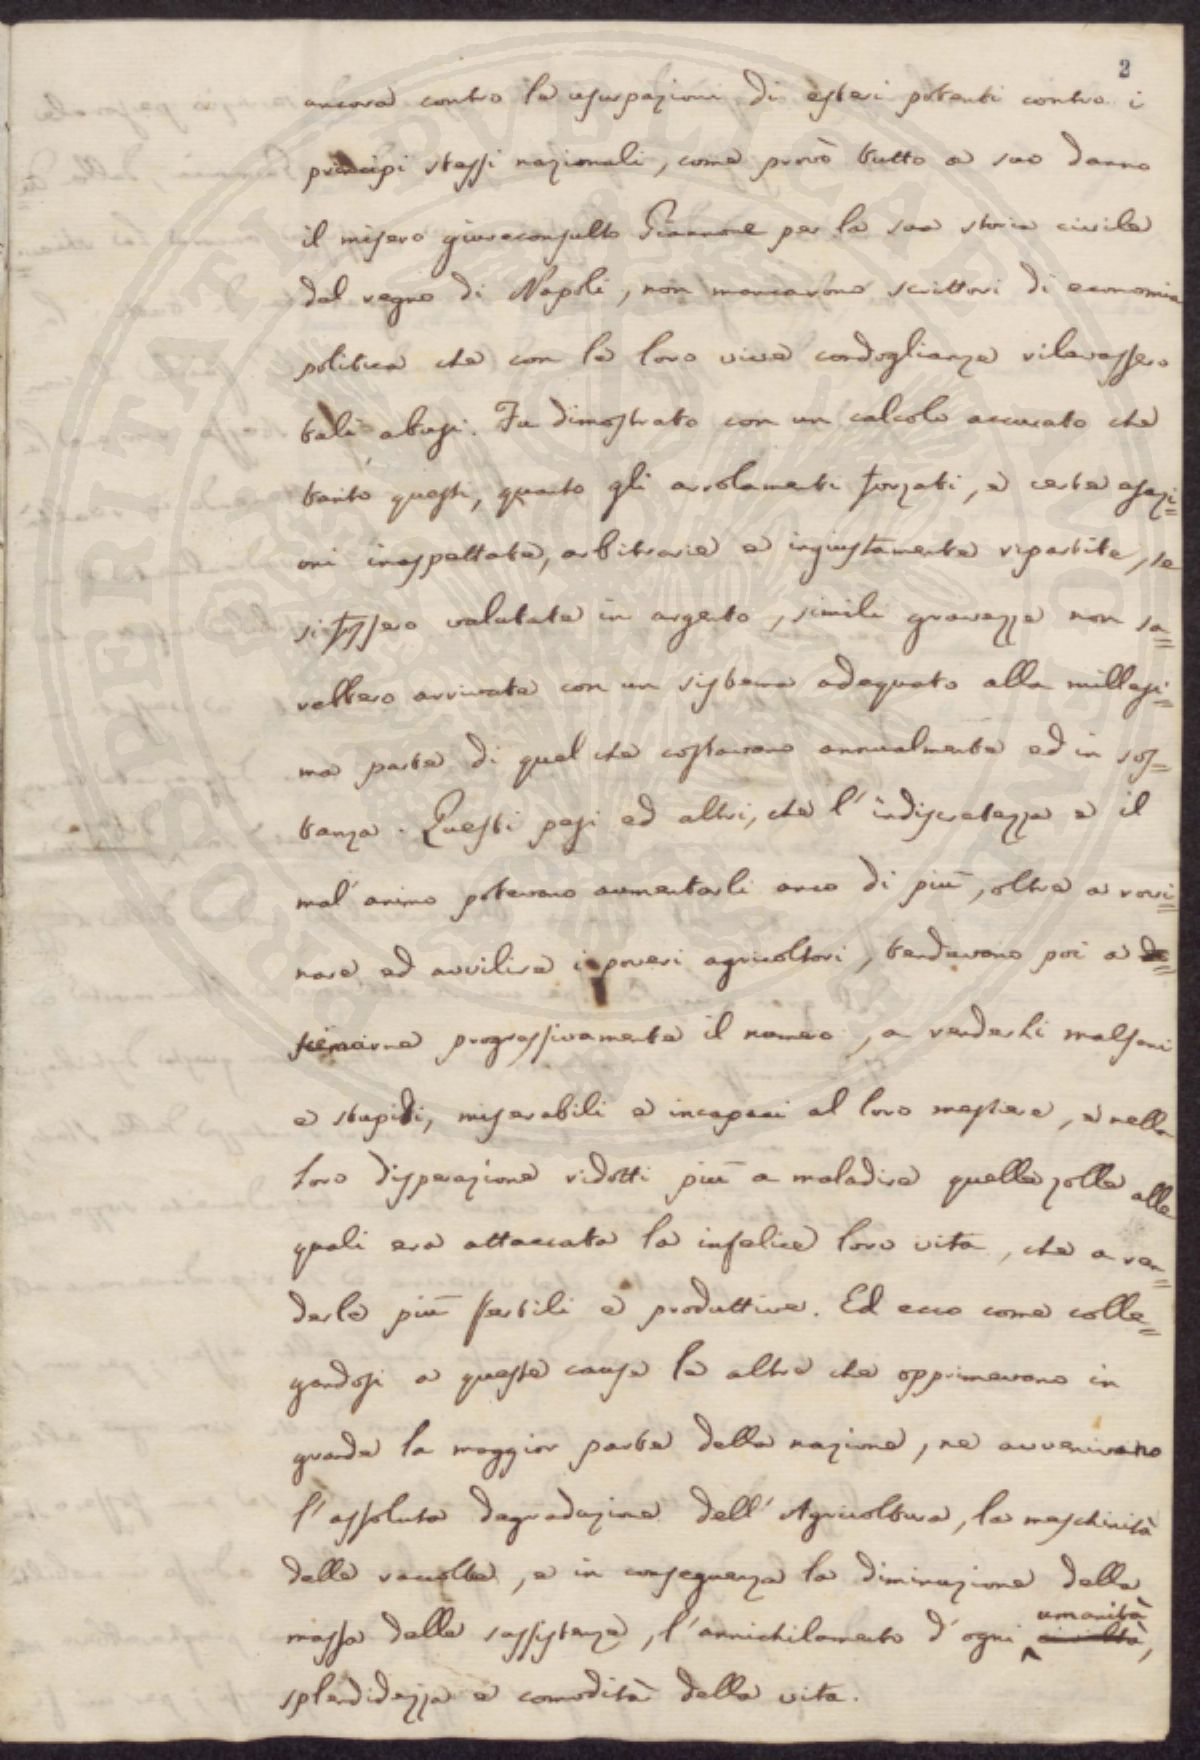 2
ancora contro le usurpazioni di esteri potenti contro i
principi stessi nazionali, come provò tutto a suo danno
il misero giureconsulto Giannone per la sua storia civile
del regno di Napoli, non mancarono scrittori di economia
politica che con le loro vive condoglianze rilevassero
tali abusi. Fu dimostrato con un calcolo accurato che
tanto questi, quanto gli arrolamenti forzati, e certe esazi=
oni inaspettate, arbitrarie e ingiustamente ripartite, se
si fossero valutate in argento, simili gravezze non sa=
rebbero arrivate con un sistema adequato alla millesi=
ma parte di quel che costavano annualmente ed in sos=
tanza. Questi pesi ed altri, che l'indiscretezza e il
mal'animo potevano aumentarli anco di più, oltre a rovi=
nare ed avvilire i poveri agricoltori, tendevano poi a de=
cimarne progressivamente il numero, a renderli malsani
e stupidi, miserabili e incapaci al loro mestiere, e nella
loro disperazione ridotti più a maladire quelle zolle alle
quali era attaccata la infelice loro vita, che a ren=
derle più fertili e produttive. Ed ecco come colle=
gandosi a queste cause le altre che opprimevano in
grande la maggior parte della nazione, ne avvenivano
l'assoluta degradazione dell'Agricoltura, la meschinità
delle raccolte, e in conseguenza la diminuzione della
massa delle sussistenze, l'annichilamento d'ogni umanità civiltà,
splendidezza e comodità della vita.
PROSPERITATI PVBLICAE